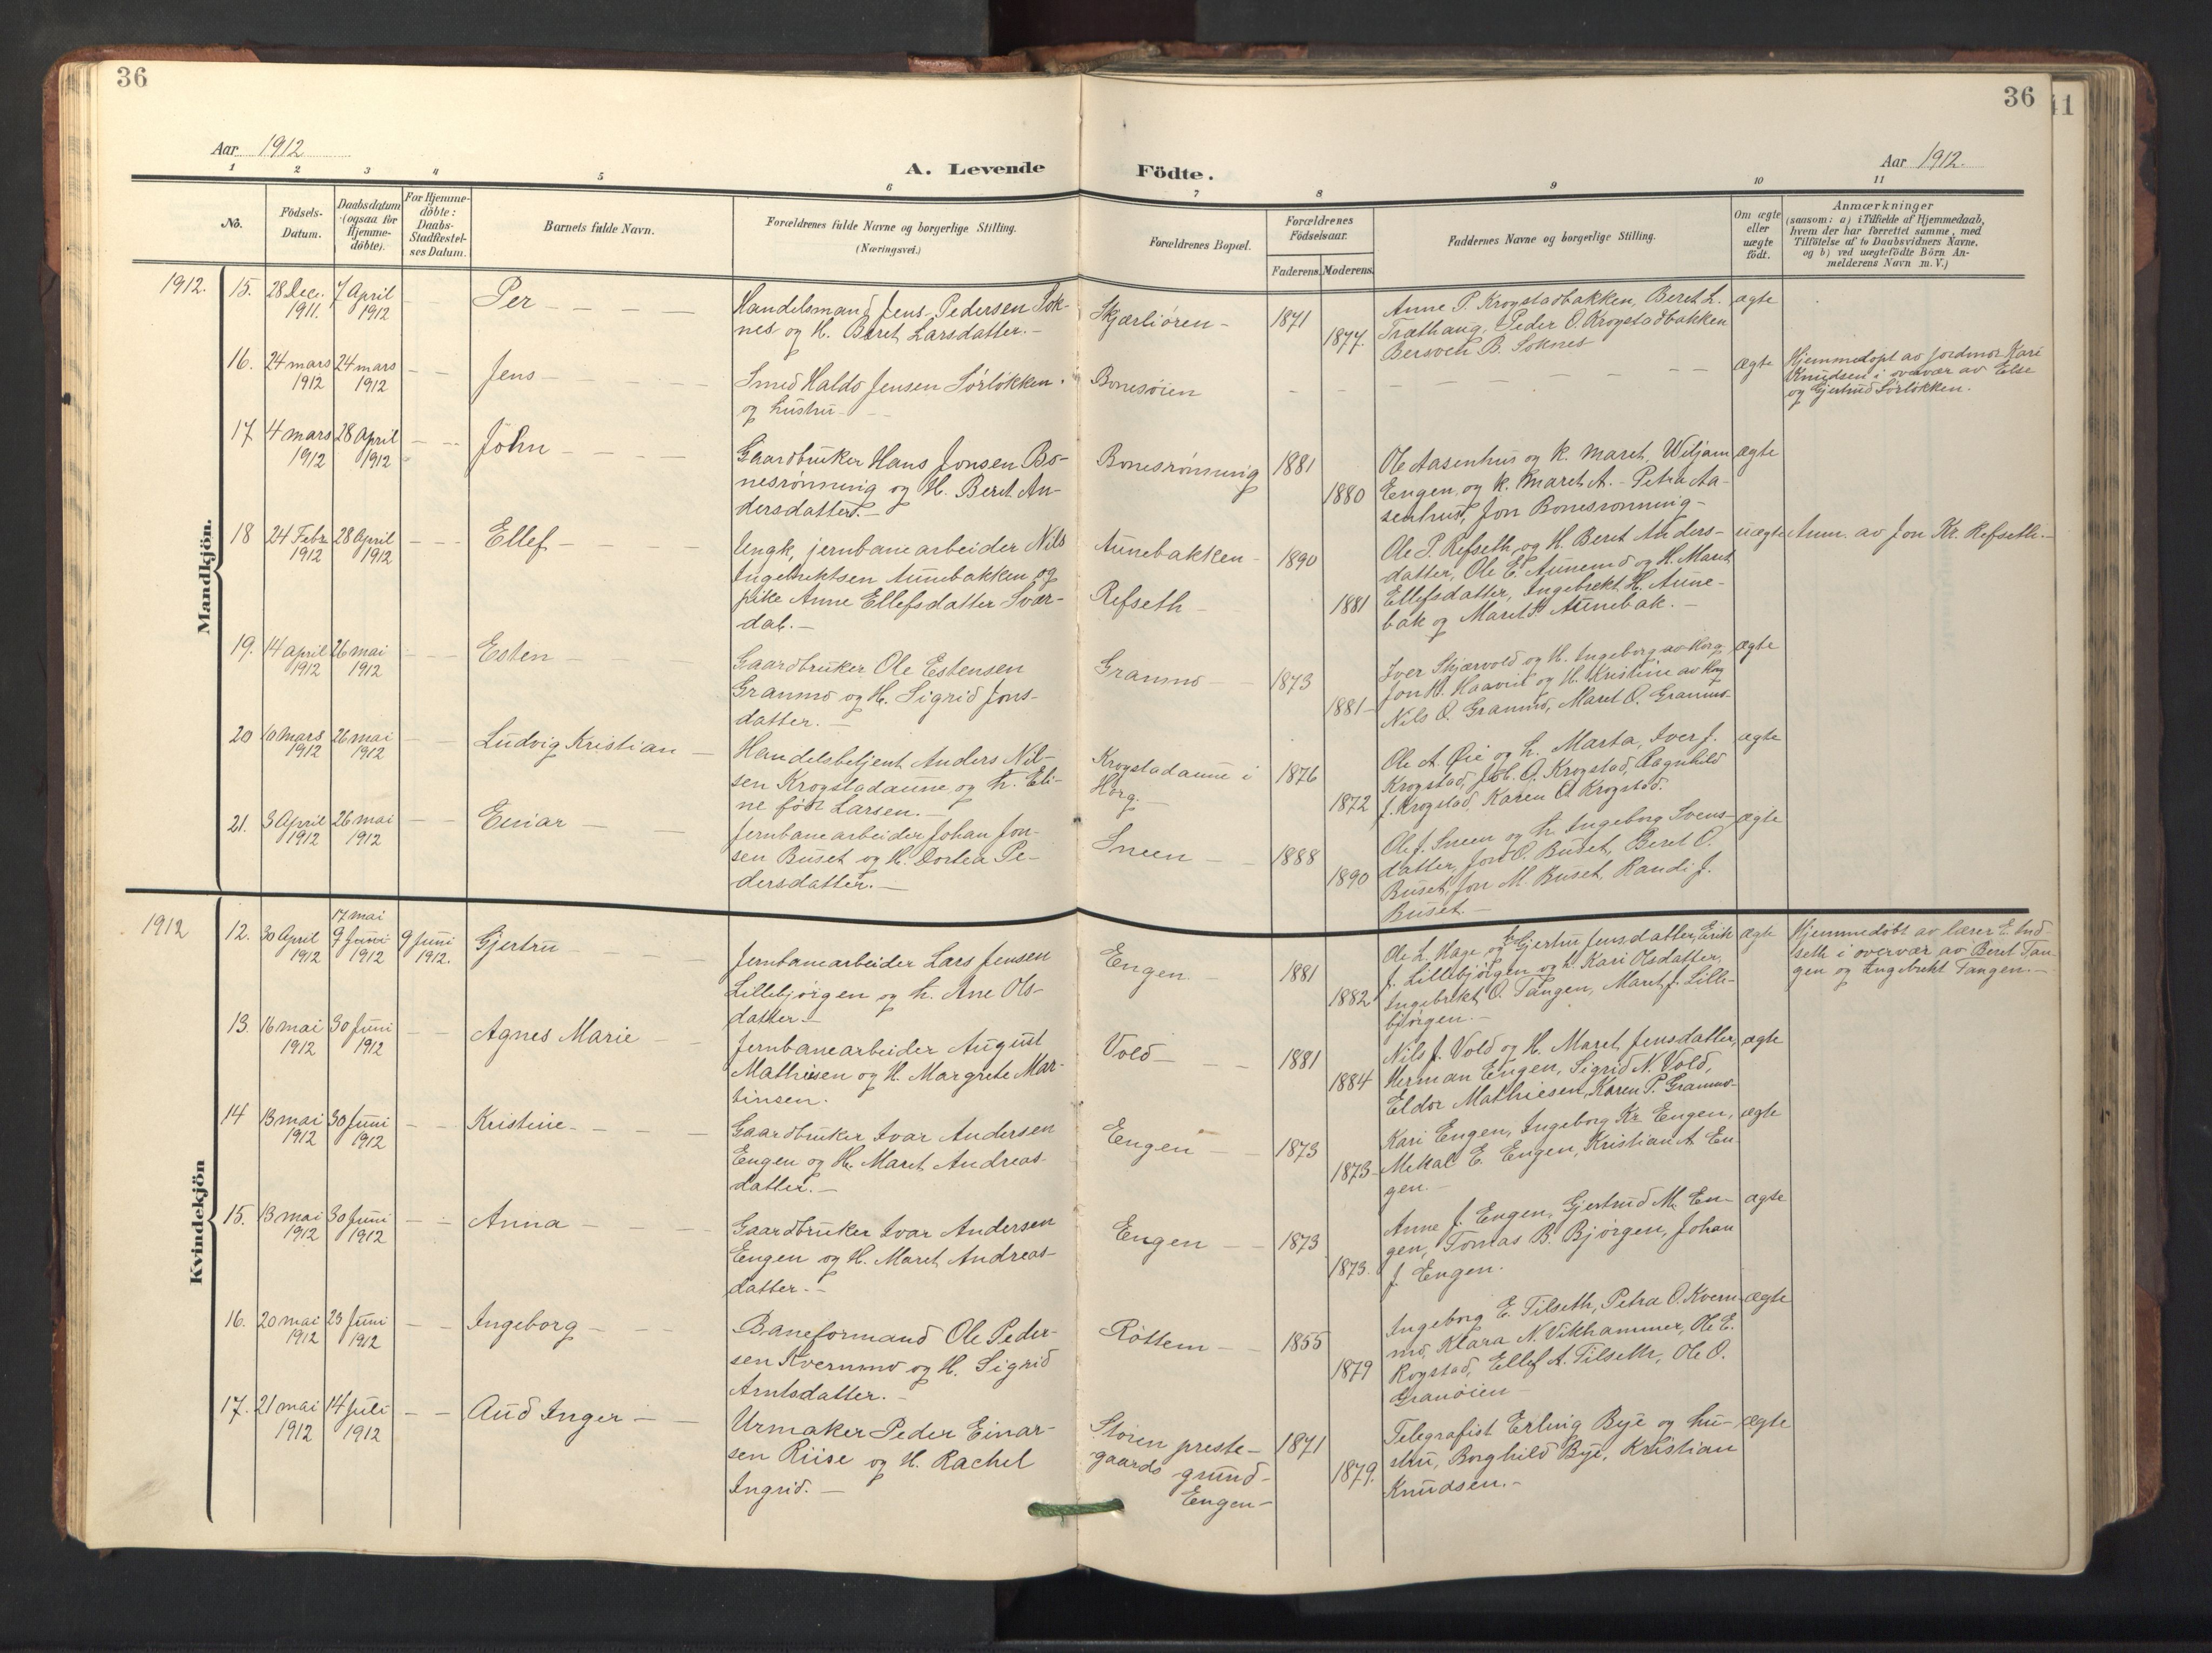 36
36
41
Aar 1912
A. Levende
Födte.
Aar 1912.
1 2 3 4 5 6 7 8 9 10 11
No.
Födsels-
Datum.
Daabsdatum
(ogsaa for
Hjemme-
döbte).
For Hjemme-
döbte:
Daabs-
Stadfæstel-
ses Datum.
Barnets fulde Navn.
Forældrenes fulde Navne og borgerlige Stilling.
(Næringsvei.)
Forældrenes Bopæl.
Forældrenes
Födselsaar.
Faderens.
Moderens.
Faddernes Navne og borgerlige Stilling.
Om ægte
eller
uægte
födt.
Anmærkninger
(saasom: a) i Tilfælde af Hjemmedaab,
hvem der har forrettet samme, med
Tilföielse af to Daabsvidners Navne,
og b) ved uægtefödte Börn An-
melderens Navn m. V.)
Mandkjön.
1912.
15. 28 Dec. 1911. 7 April 1912 — — Per — — — —
Handelsmand Jens Pedersen Sok-
nes og H. Beret Larsdatter. —
Skjærliøren — 1871 1877.
Anne P. Krogstadbakken, Beret L.
Træthaug, Peder O. Krogstadbakken
Bersven B. Soknes
ægte
16. 24 mars 1912 24 mars 1912 — — Jens — — — —
Smed Haldo Jensen Sørløkken
og hustru — —
Bonesøien
— — — — — — — —
ægte
Hjemmedøpt av jordmor Kari
Knudsen i overvær av Else
og Gjertrud Sørløkken.
17 4 mars 1912 28 April 1912 — — John — — — —
Gaardbruker Hans Jonsen Bo-
nesrønning og H. Beret An-
dersdatter. —
Bonesrønning 1881 1880
Ole Aasenhus og k. Maret, Wiljam
Engen, og k. Maret A. — Petra Aa-
senhus, Jon Bonesrønning —
ægte
18 24 Febr. 1912 28 April 1912 — — — Ellef — — — —
Ungk. jernbanearbeider Nils
Ingebrektsen Aunebakken og
pike Anne Ellefsdatter Svær-
dal. —
Aunebakken — 1890
Refseth — 1881
Ole P. Refseth og H. Beret Anders-
datter, Ole E. Aunemo og H. Maret
Ellefsdatter, Ingebrekt H. Aune-
bak og Maret Aunebak. —
uægte
Anm. av Jon Kr. Refseth. —
19. 14 april 1912 26 mai 1912 — — — Esten — — —
Gaardbruker Ole Estensen
Granmo og H. Sigrid Jons-
datter. —
Granmo — — 1873 1881 —
Iver Skjærvold og H. Ingeborg av Horg
Jon H. Haavin og H. Kristine av Horg
Nils O. Granmo, Maret O. Granmo.
ægte
20 10 mars 1912 26 mai 1912 — — Ludvig Kristian —
Handelsbetjent Anders Nil-
sen Krogstadaune og h. Eli-
ne født Larsen. —
Krogstadaune i
Horg. —
1876 1872
Ole A. Øie og h. Marta, Iver J.
Krogstad, Joh. O. Krogstad, Ragnhild
J. Krogstad, Karen O. Krogstad.
ægte
21. 3 April 1912 26 mai 1912 — — Einar — —
Jernbanearbeider Johan Jon-
sen Buset og H. Dortea Pe-
dersdatter. —
Sneen — — 1888 1890
Ole J. Sneen og h. Ingeborg Svens-
datter, Jon O. Buset, Beret O.
Buset, Jon M. Buset, Randi J.
Buset. —
ægte
Kvindekjön
1912
12. 30 April 1912 17 mai 9 Juni 1912 9 Juni 1912. Gjertru — — — —
Jernbanearbeider Lars Jensen
Lillebjørgen og h. Ane Ols-
datter. —
Engen. 1881 1882
Ole L. Hage og h. Gjertru Jensdatter, Erik
J. Lillebjørgen og h. Kari Olsdatter,
Ingebrikt O. Tangen, Maret J. Lille-
bjørgen. —
ægte
Hjemmedøbt av lærer E. Ind-
seth i overvær av Beret Tan-
gen og Ingebrekt Tangen. —
13. 16 mai 1912 30 Juni 1912 — — Agnes Marie — —
Jernbanearbeider August
Mathisen og H. Margrete Mar-
tinsen.
Vold — — — 1881 1884
Nils J. Vold og H. Maret Jensdatter,
Herman Engen, Sigrid N. Vold,
Eldor Mathiesen, Karen P. Granmo.
ægte
14 13 mai 1912 30 Juni 1912 — — Kristine — — — —
Gaardbruker Ivar Andersen
Engen og H. Maret Andreas-
datter. —
Engen — — 1873 1873 —
Kari Engen, Ingeborg Kr. Engen,
Mekal E. Engen, Kristian A. En-
gen. —
ægte
15. 13 mai 1912 30 Juni 1912 — — Anna — — — —
Gaardbruker Ivar Andersen
Engen og H. Maret Andreas-
datter. —
Engen — — 1873 1873.
Anne J. Engen, Gjertrud M. En-
gen, Tomas B. Bjørgen, Johan
J. Engen.
ægte
16. 20 mai 1912 23 Juni 1912 — — Ingeborg — — —
Baneformand Ole Peder-
sen Kvernmo og H. Sigrid
Arntsdatter. —
Røttem — — 1855 1879
Ingeborg E. Tilseth, Petra O. Kvern-
mo, Klara N. Vikhammer, Ole E.
Rogstad, Ellef A. Tilseth, Ole O.
Granøien —
ægte
17. 21 mai 1912 14 Juli 1912 — — Aud Inger — —
Urmaker Peder Einar-
sen Riise og H. Rachel
Ingrid. —
Støren preste-
gaards grund —
Engen —
1871 1879.
Telegrafist Erling Bye og hu-
stru, Borghild Bye, Kristian
Knudsen. —
ægte